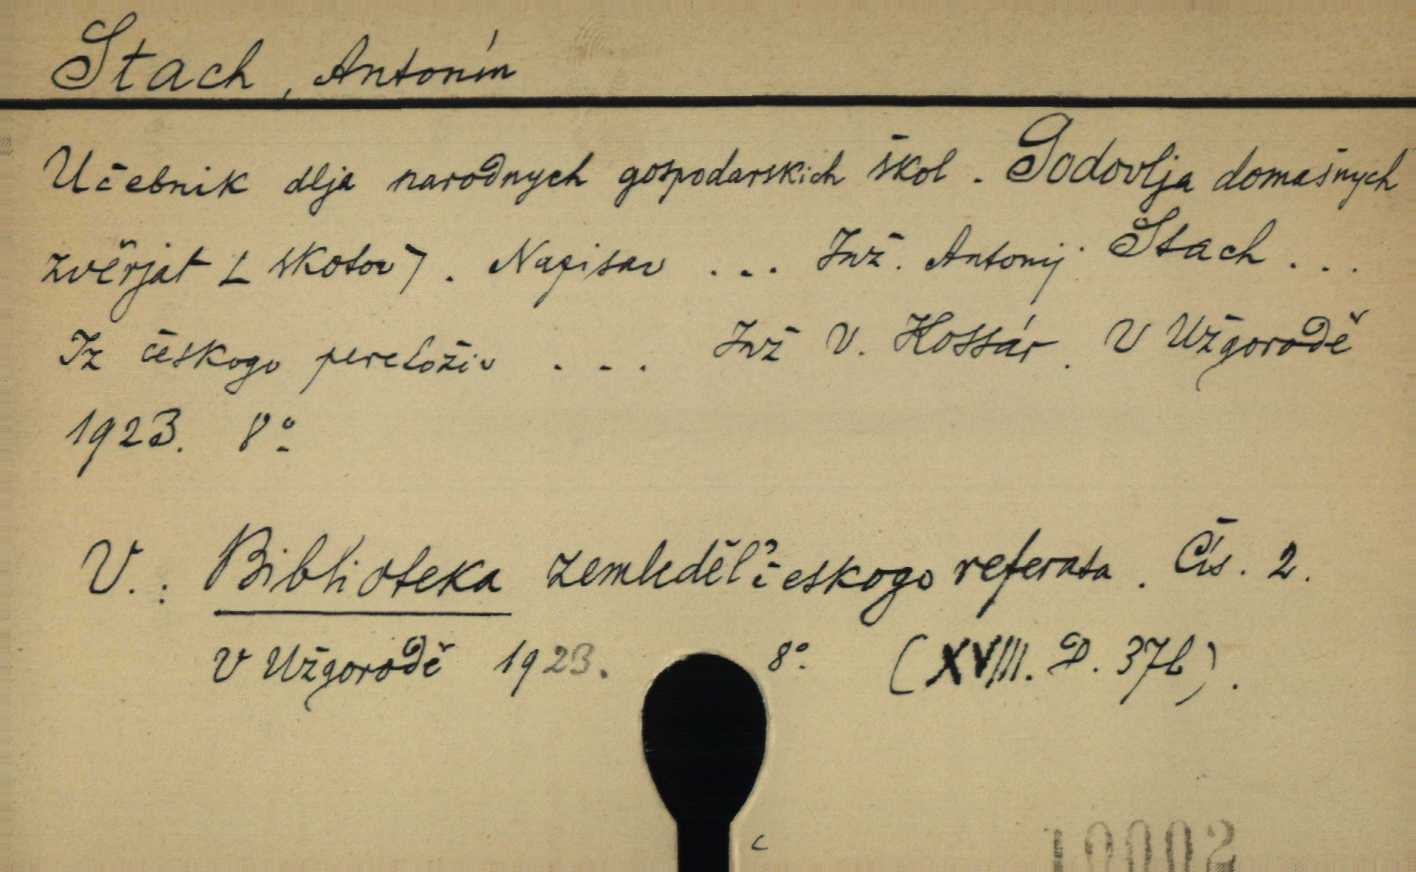 Stach, Antonín
Učebnik dlja narodnych gospodarskich škol. Godovlja domašnych
zvěrjat [skotov]. Napisav ... Inž. Antonij Stach ...
Iz českogo pereloživ .... Inž V. Hossár. V Užgorodě
1923. 8°.
V.: Biblioteka zemleděl'českogo referata. Čís. 2.
V Užgorodě 1923. 8°. (XVIII. D. 37b).